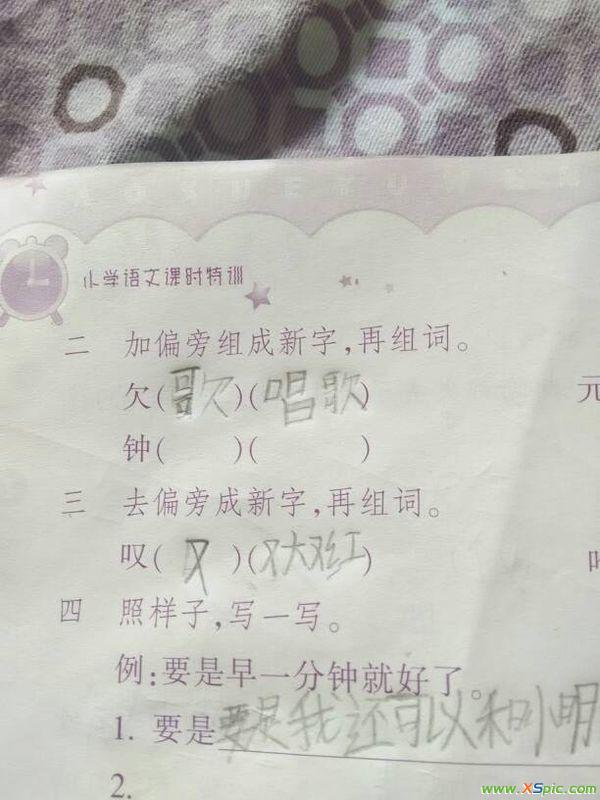 小学语文课时特训
二 加偏旁组成新字,再组词。
欠(歌)(唱歌) 元
钟( )( )
三 去偏旁成新字,再组词。
叹(又)(又大又红)
四 照样子,写一写。
例:要是早一分钟就好了。
1. 要是要是我还可以和小明
2.
www.XSpic.com